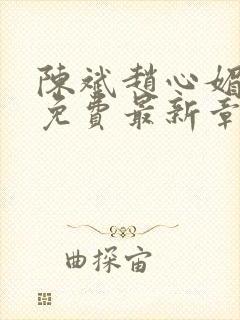 陳斌趙心媚
免費最新章
曲探宙